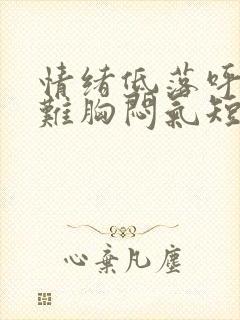 情緒低落呼
難胸悶氣短
心棄凡塵